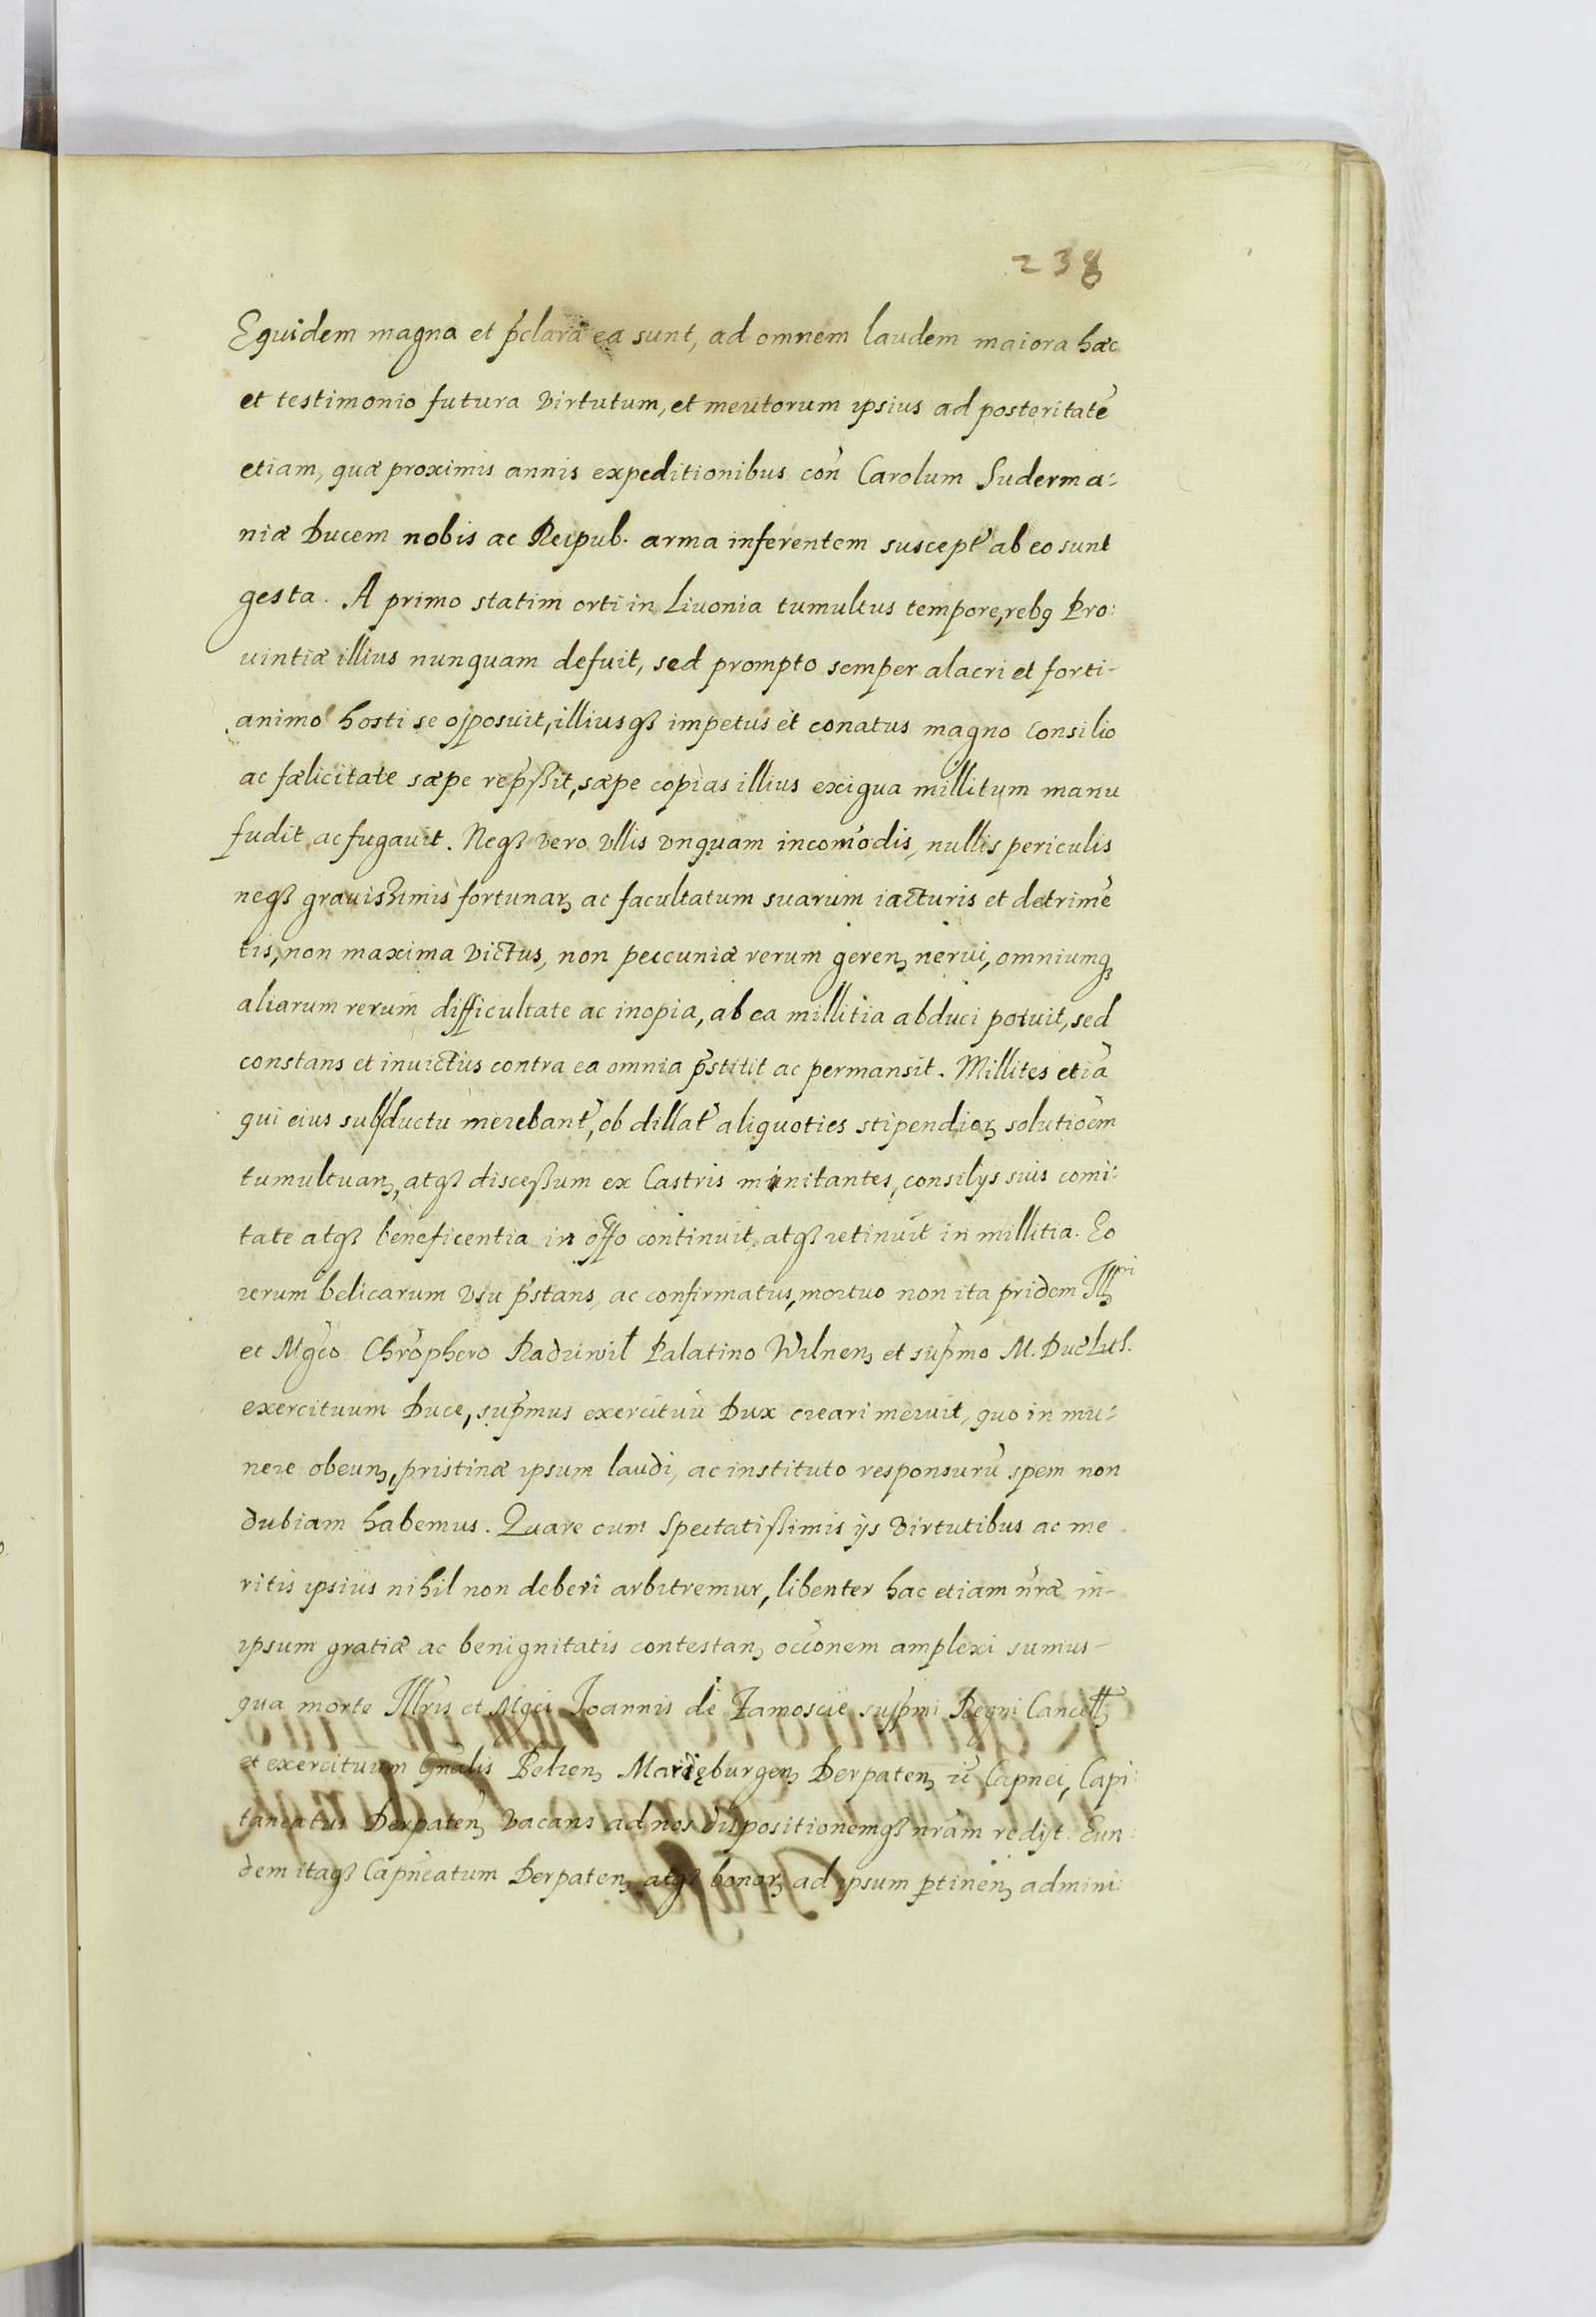 238
Equidem magna et p̃clara ea sunt, ad omnem laudem maiora hæc
et testimonio futura virtutum, et meritorum ipsius ad posteritatẽ
etiam, quæ proximis annis expeditionibus coñ Carolum Suderma:
niæ Ducem nobis ac Reipub. arma inferentem suscept̃ ab eo sunt
gesta. A primo statim orti in Liuonia tumultus tempore, rebꝫ Pro:
uintiæ illius nunquam defuit, sed prompto semper alacri et forti-
animo hosti se opposuit, illiusqꝫ impetus et conatus magno consilio
ac fælicitate sæpe rep̃ßit, sæpe copias illius exigua millitum manu
fudit ac fugauit. Neqꝫ vero vllis vnquam incom̃odis, nullis periculis
neqꝫ grauissimis fortunarꝫ ac facultatum suarum iacturis et detrimẽ
tis, non maxima victus, non peccuniæ rerum gerenꝫ nerui, omniumqꝫ
aliarum rerum difficultate ac inopia, ab ea millitia abduci potuit, sed
constans et inuictus contra ea omnia p̃stitit ac permansit. Millites etiã
qui eius sub ductu merebant̃, ob dillat̃ aliquoties stipendiorꝫ solutiõem
tumultuanꝫ, atqꝫ disceßum ex Castris minitantes, consilijs suis comi:
tate atqꝫ beneficentia in off̃o continuit, atqꝫ retinuit in millitia. Eo
rerum belicarum vsu p̃stans, ac confirmatus, mortuo non ita pridem Illꝫ ri
et Mg̃co Chrõphero Radziwił Palatino Wilnenꝫ et sup̃mo M. Duc̃ Lith.
exercituum Duce, sup̃mus exercituũ Dux creari meruit, quo in mu:
nere obeunꝫ, pristinæ ipsum laudi, ac instituto responsurũ spem non
dubiam habemus. Quare cum spectatißimis ijs virtutibus ac me
ritis ipsius nihil non deberi arbitremur, libenter hac etiam nr̃æ in-
ipsum gratiæ ac benignitatis contestanꝫ occõnem amplexi sumus-
qua morte Illr̃is et Mgci Joannis de Zamoscie sup̃mi Regni Cancell̃ꝫ
et exercituum Gñalis Belzenꝫ Marięburgenꝫ Derpatenꝫ Capnei, Capi:
taneatus Derpatenꝫ vacans ad nos dispositionemqꝫ nr̃am redijt. Eun:
dem itaqꝫ Capñeatum Derpatenꝫ atqꝫ bonorꝫ ad ipsum ꝑtinenꝫ admini: